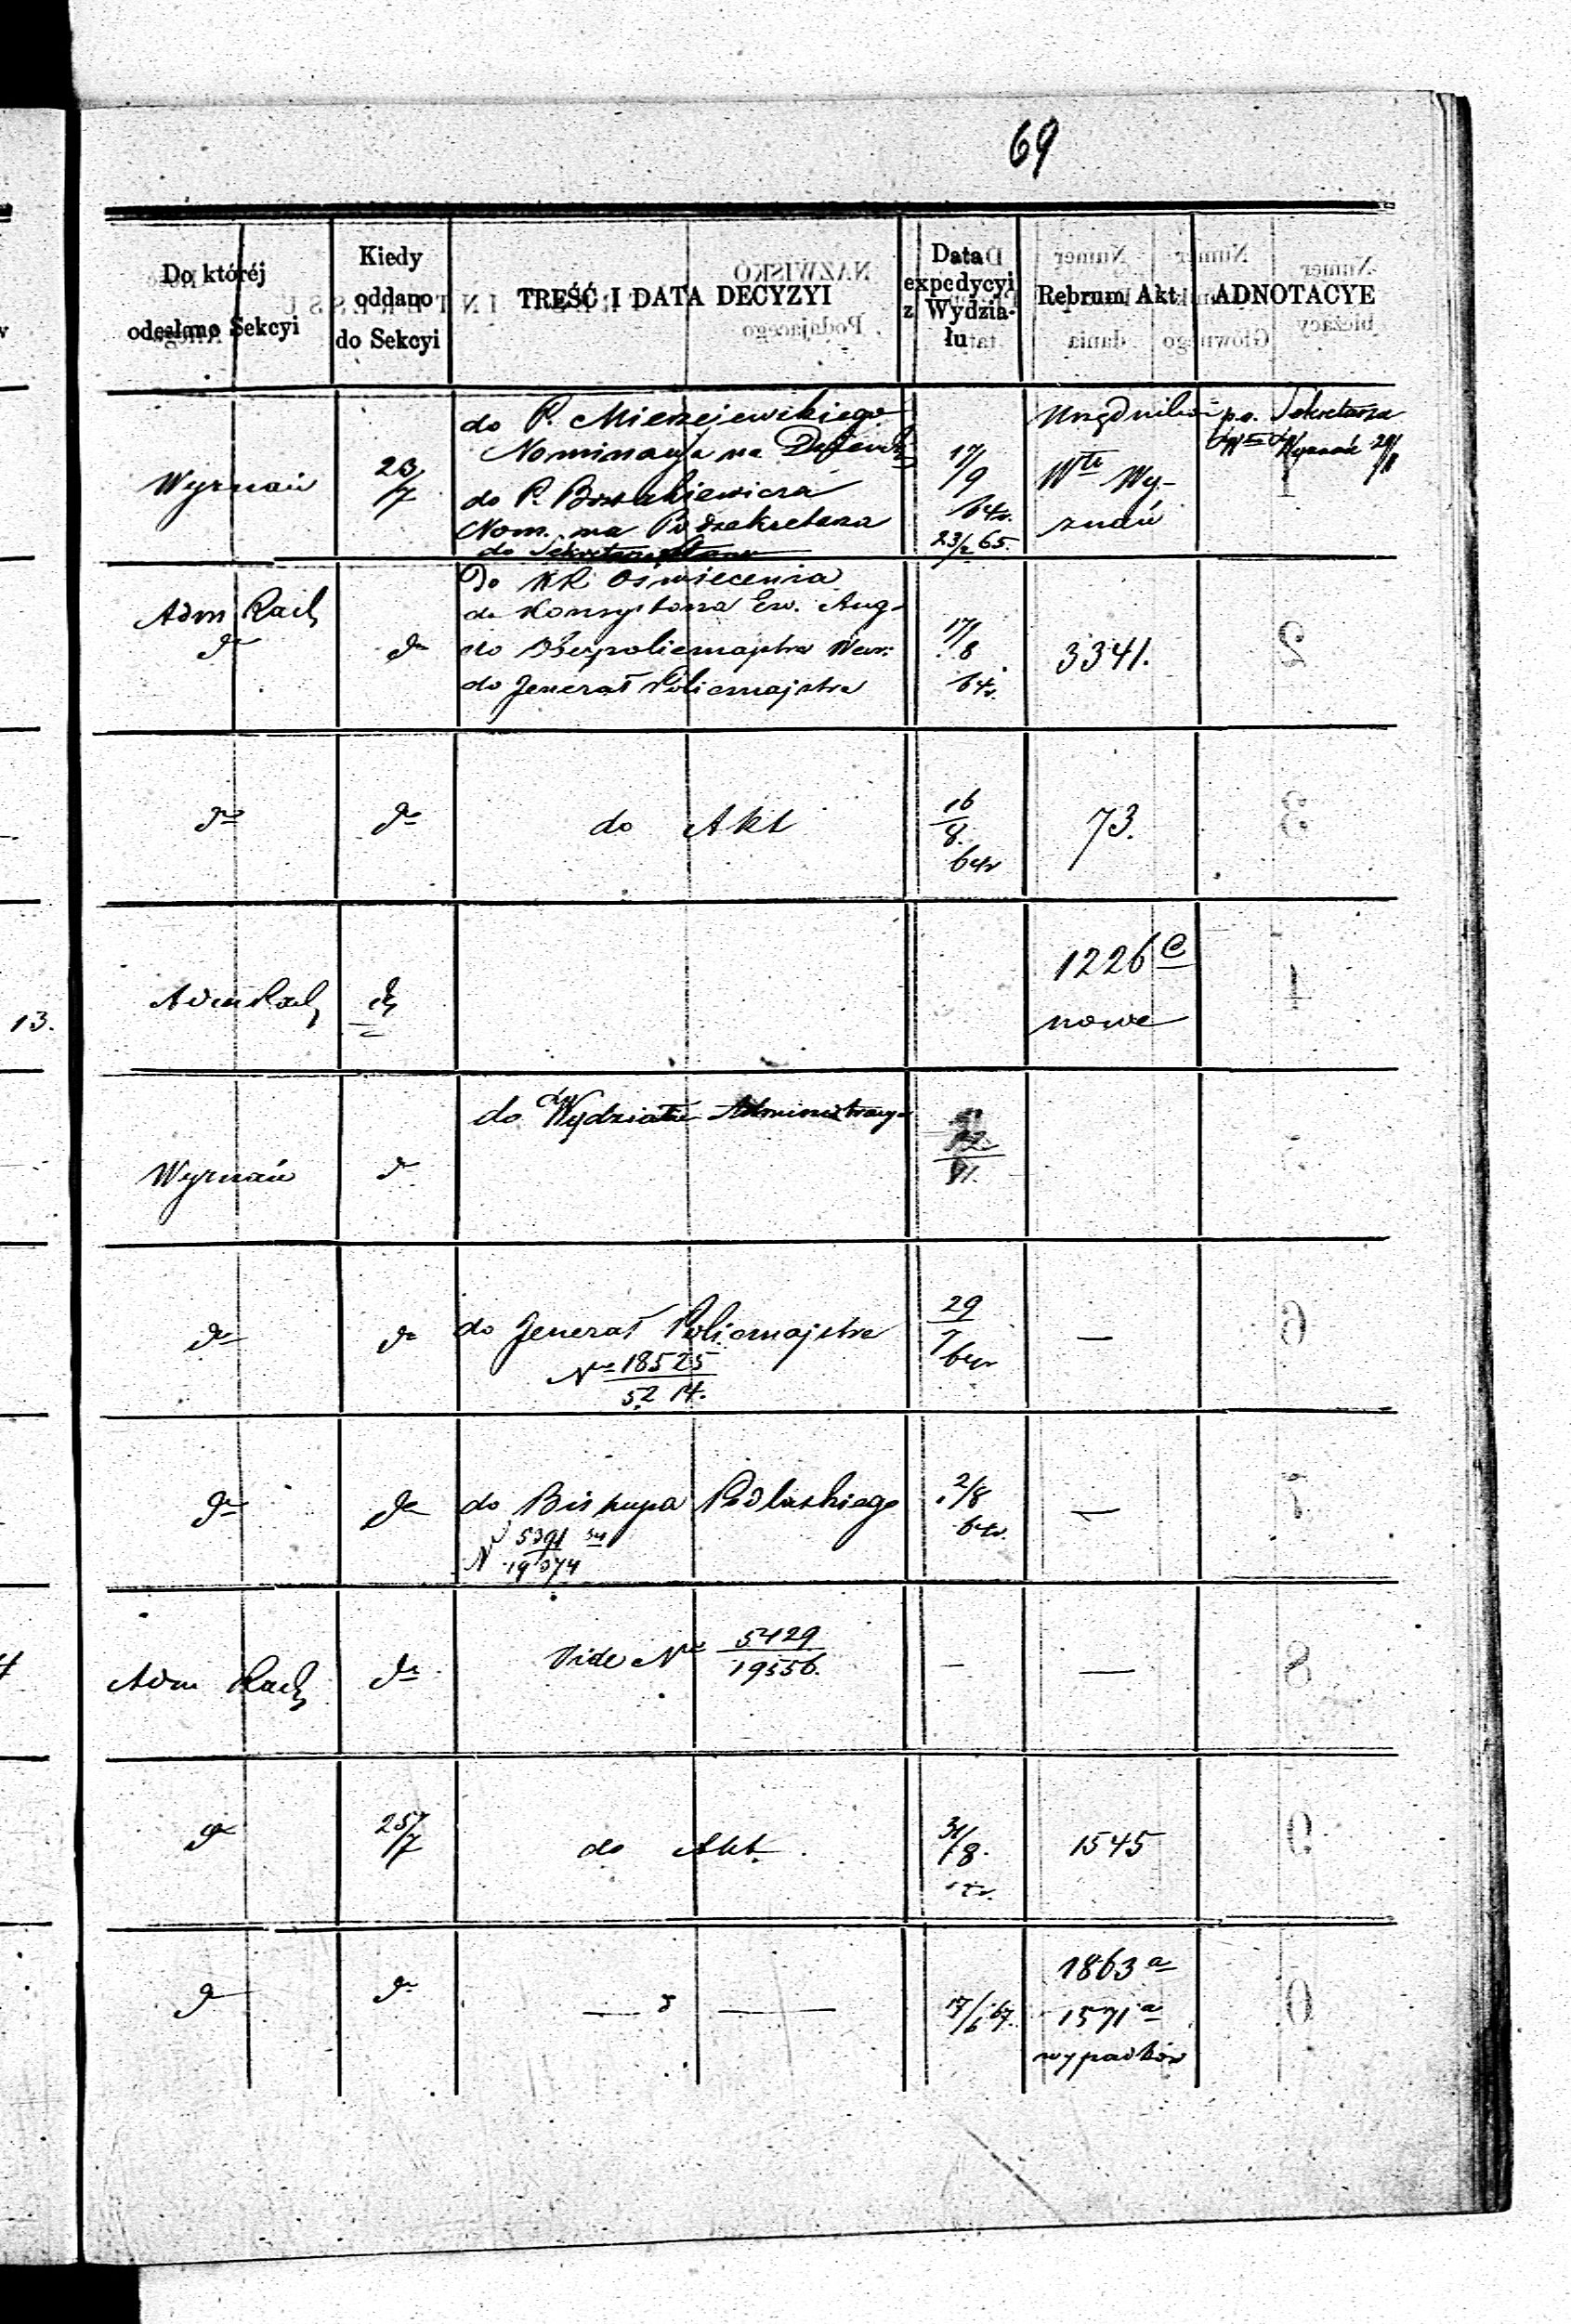 69
Do któréj
odesłano Sekcyi
Kiedy
oddano
do Sekcyi
TREŚĆ I DATA DECYZYI
Data
expedycyi
z Wydzia-
łu
Rebrum Akt
ADNOTACYE
Wyznań
23/7
do P. Mierzejewskiego
Nominacya na
do P.
Nom. na Podsekretarza
do Sekretarza Stanu
17/9
64r.
23/2 65.
Urzędników
Wte Wy-
znań
p.o. Sekretarza
Wyznań
Adm Rach
do
do
Do KR Oświecenia
do Konsystorza Ew. Aug.
do Oberpolicmajstra War:
do Jenerał Policmajstra
17/8
64r.
3341.
do
do
do Akt
16/8.
64r
73.
Adm Rach
do
1226 C
nowe
Wyznań
do
do Wydziału Administracy
do
do
do Jenerał Policmajstra
No 18525
5214.
29/7
64r
—
do
do
do Biskupa Podlaskiego
No 5391
19074
2/8
64r.
—
Adm Rach
do
Vide No 5429
19556.
—
—
do
25/7
do Akt.
31/8.
1545
do
do
17/6 67.
1863 a
1571 a
wypadków
13.